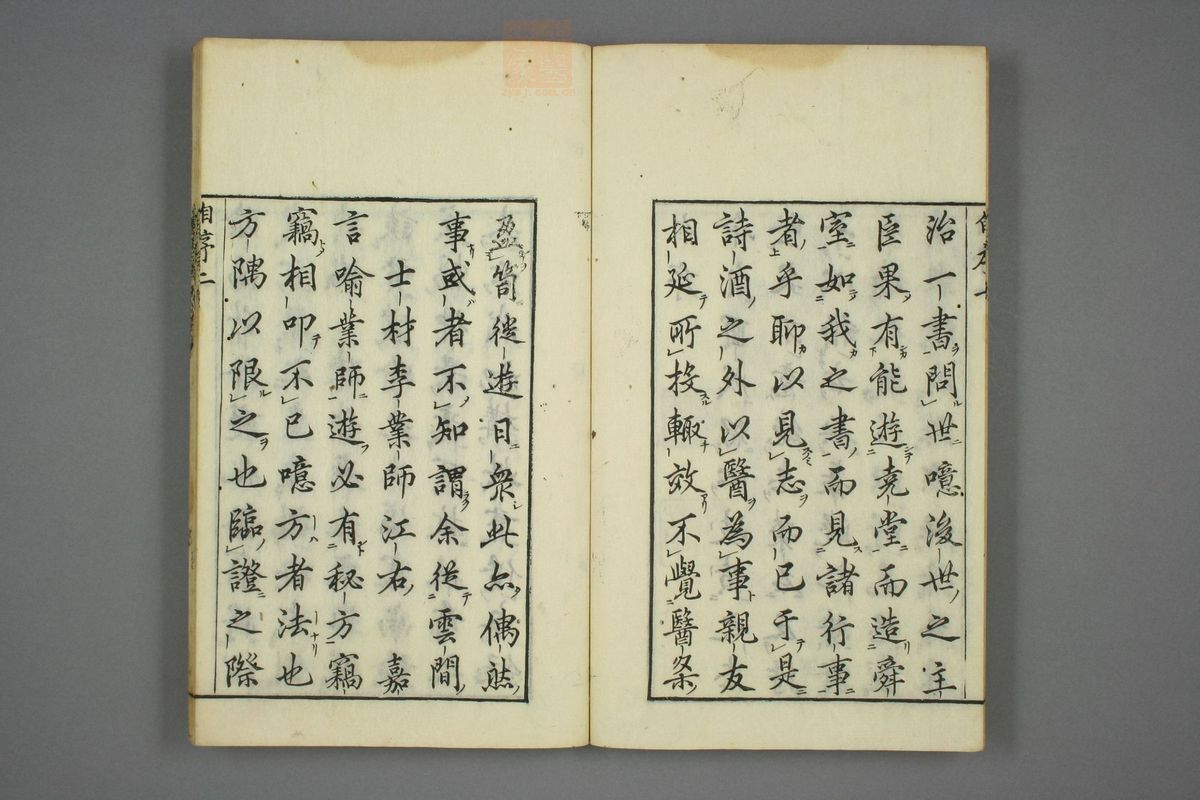 治一書問世噫後世之主
臣果有能遊堯堂而造舜
室如我之書而見諸行事
者乎聊以見志而已于是
詩酒之外以醫為事親友
相延所投輙效不覺醫案
盈笥從遊日衆此亦偶然
事或者不知謂余從雲間
士材李業師江右嘉
言喻業師遊必有秘方竊
竊相叩不已噫方者法也
方隅以限之也臨證之際
自序二